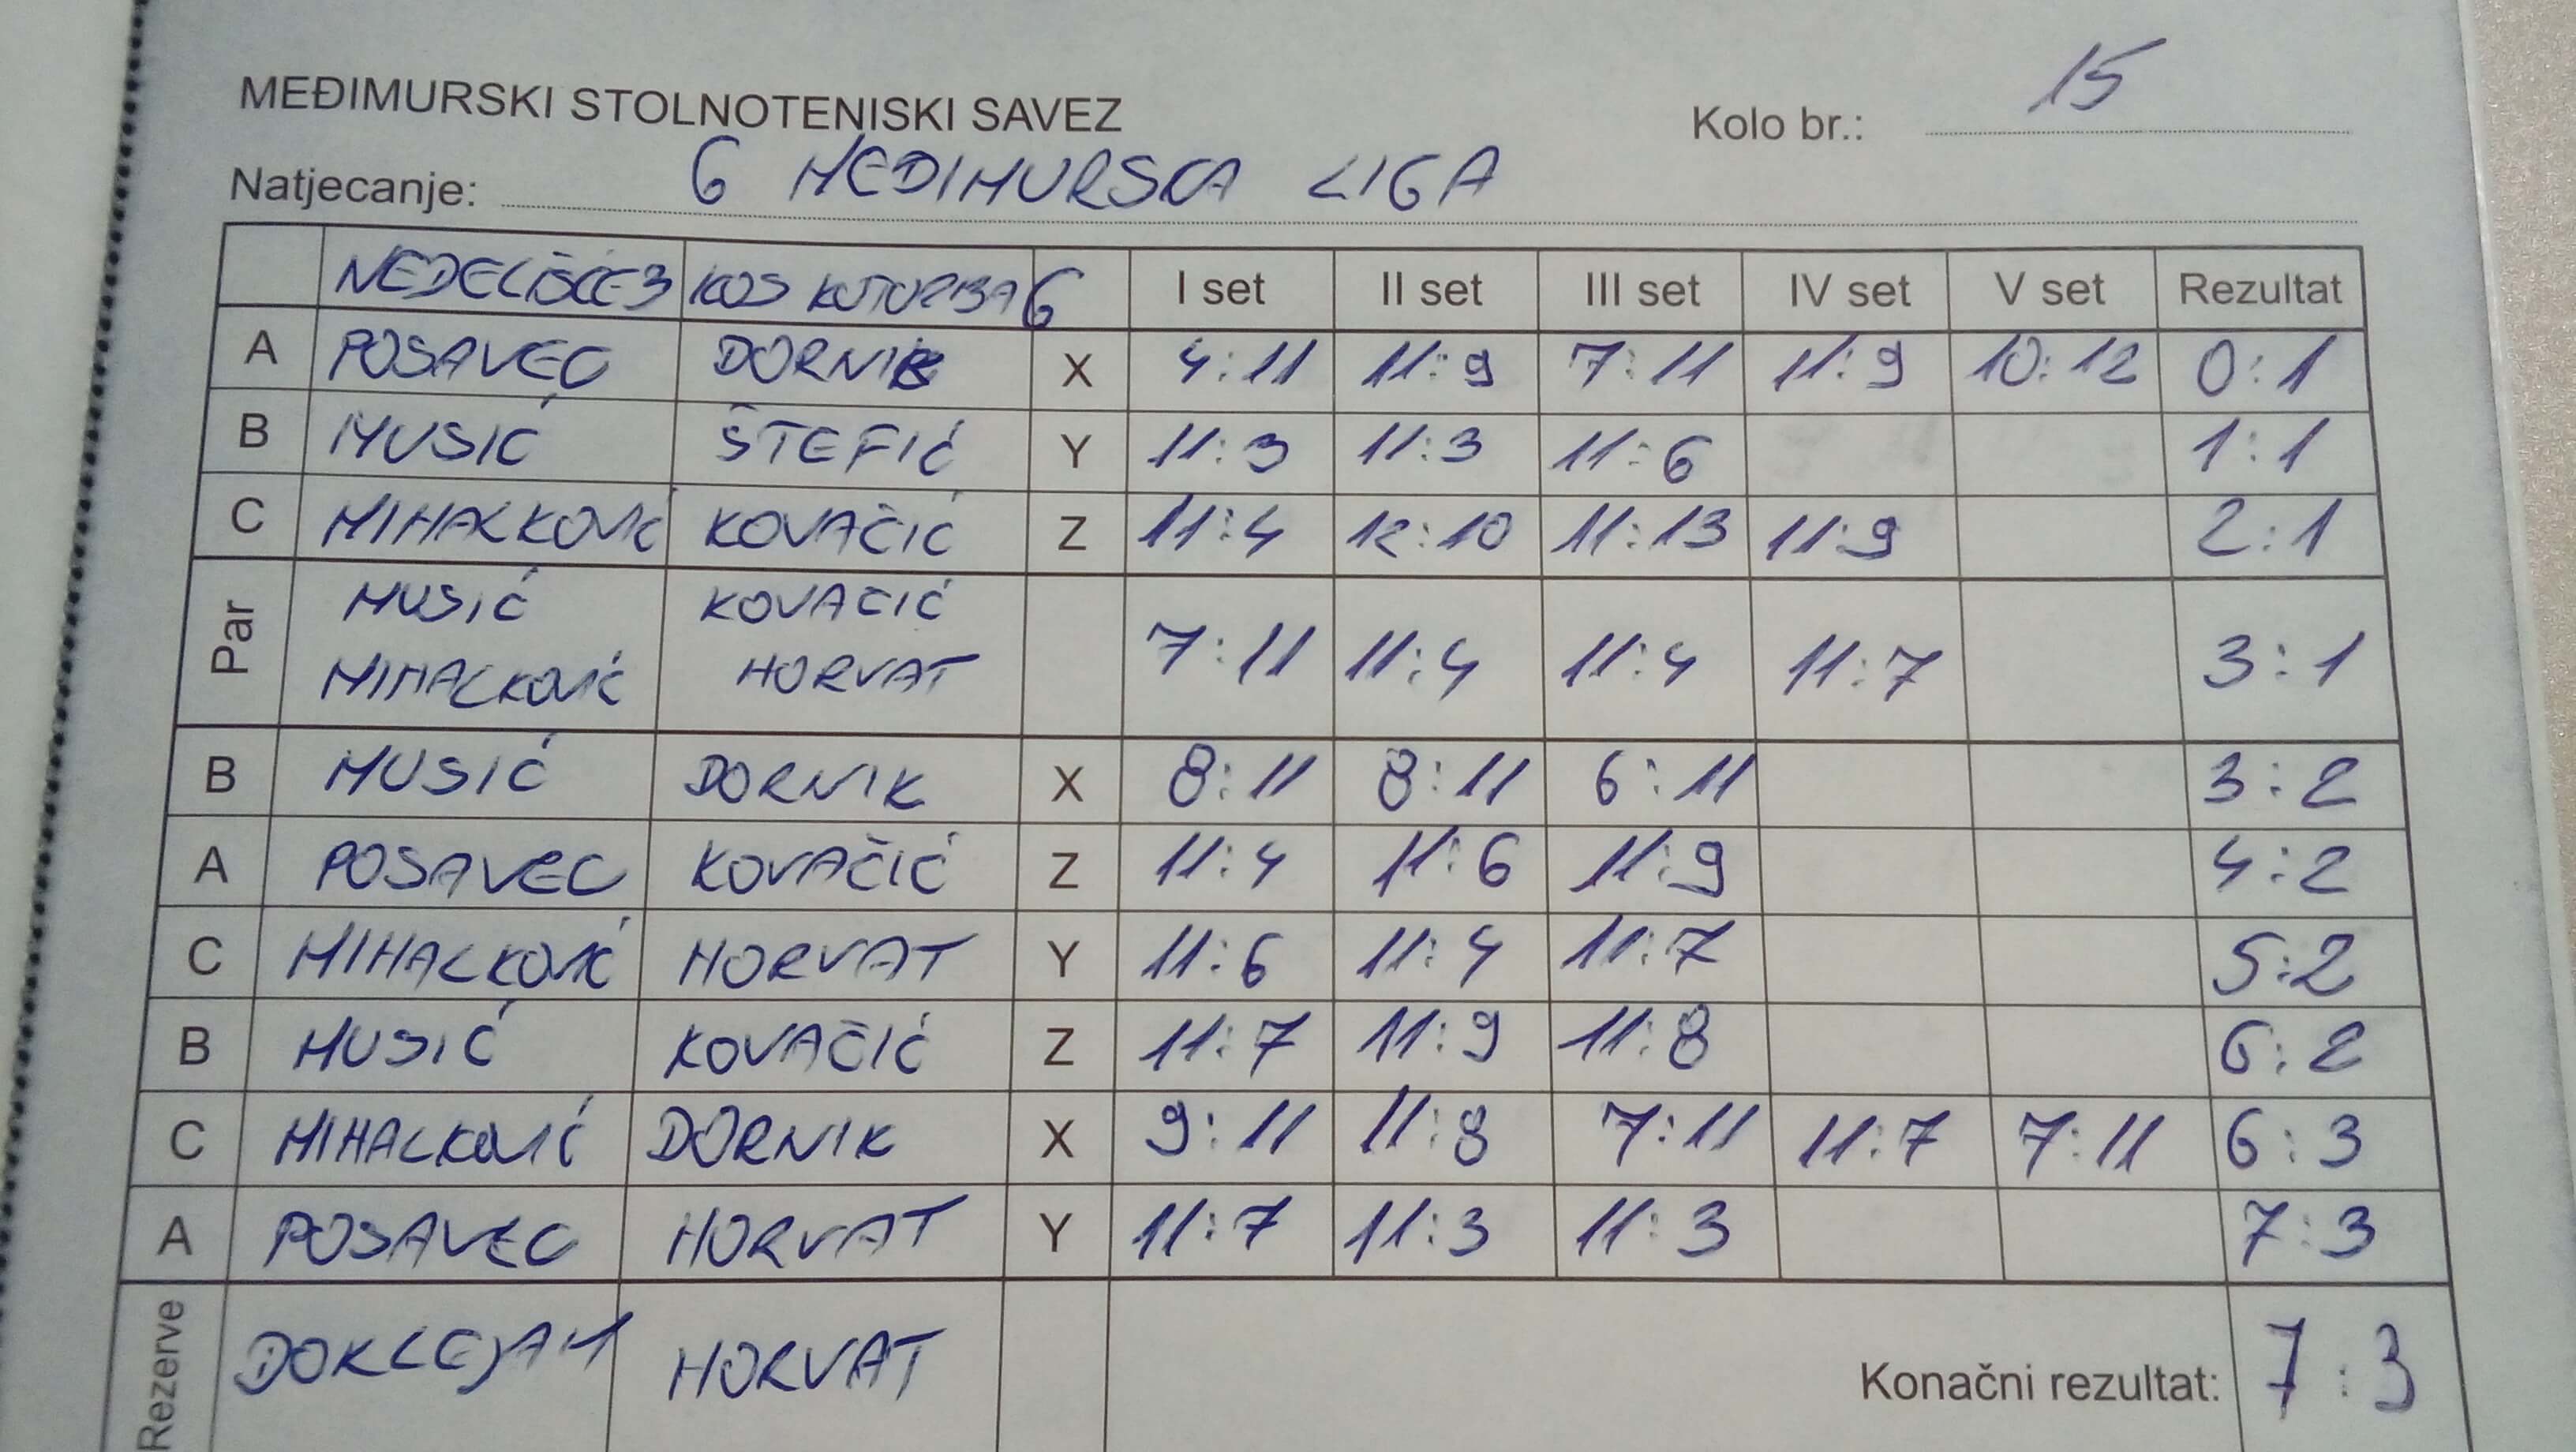 MEĐIMURSKI STOLNOTENISKI SAVEZ
Kolo br.: 15
Natjecanje: 6 MEĐIMURSKA LIGA
NEDELIŠĆE 3 KOS KOTORIBA 6 I set II set III set IV set V set Rezultat
A POSAVEC DORNIK X 4:11 11:9 7:11 11:9 10:12 0:1
B MUSIĆ ŠTEFIĆ Y 11:3 11:3 11:6 1:1
C MIHALKOVIĆ KOVAČIĆ Z 11:4 12:10 11:13 11:9 2:1
Par MUSIĆ KOVAČIĆ
MIHALKOVIĆ HORVAT 7:11 11:4 11:4 11:7 3:1
B MUSIĆ DORNIK X 8:11 8:11 6:11 3:2
A POSAVEC KOVAČIĆ Z 11:4 11:6 11:9 4:2
C MIHALKOVIĆ HORVAT Y 11:6 11:4 11:7 5:2
B MUSIĆ KOVAČIĆ Z 11:7 11:9 11:8 6:2
C MIHALKOVIĆ DORNIK X 9:11 11:8 7:11 11:7 7:11 6:3
A POSAVEC HORVAT Y 11:7 11:3 11:3 7:3
Rezerve HORVAT
Konačni rezultat: 7:3